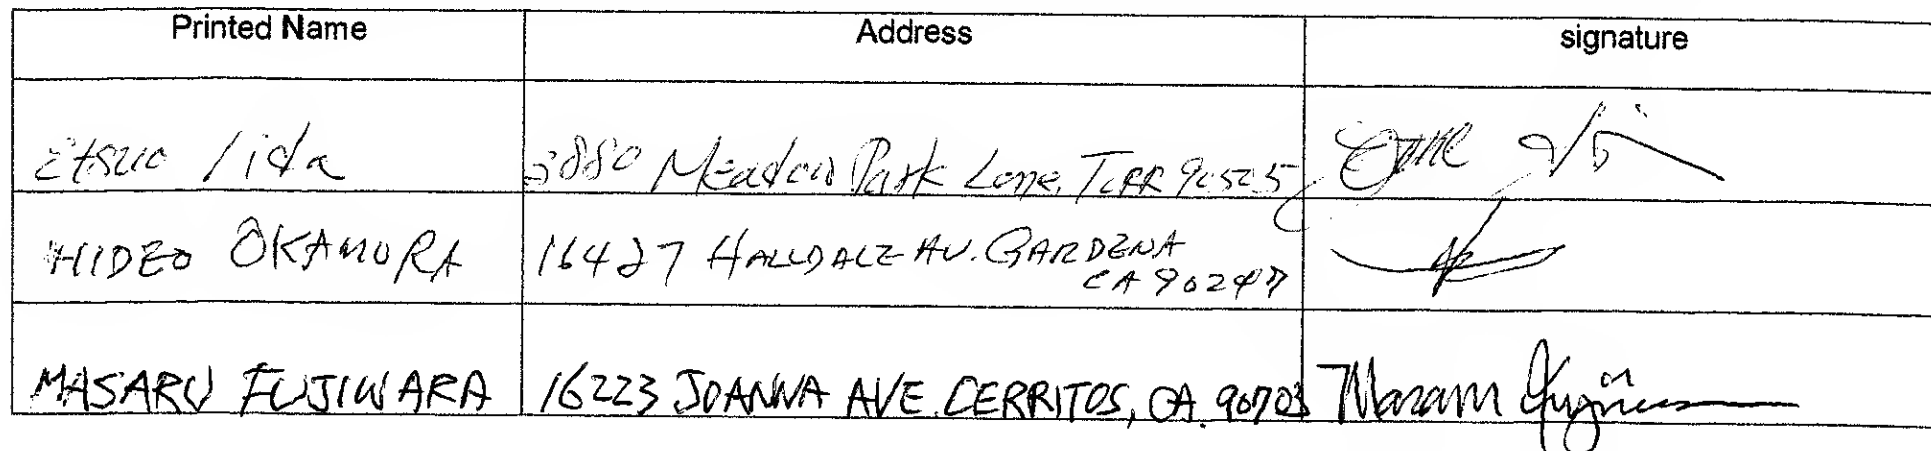 Printed Name Address signature
Etsuo Iida 3880 Meadow Park Lane, TORR 90505
HIDEO OKAMURA 16427 HALLDALE AV. GARDENA
CA 90247
MASARU FUJIWARA 16223 JOANNA AVE. CERRITOS, CA. 90703 Masaru Fujiwara